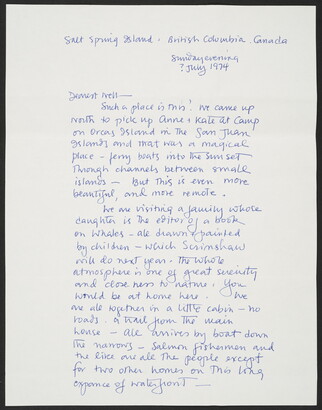 Salt Spring Island . British Columbia . Canada
Sunday evening
? July 1974
Dearest Nell —
Such a place is this! We came up
north to pick up Anne & Kate at Camp
on Orcas Island in the San Juan
Islands and that was a magical
place - ferry boats into the sunset
through channels between small
islands — But this is even more
beautiful, and more remote.
We are visiting a family whose
daughter is the editor of a book
on whales - all drawn & painted
by children - which Scrimshaw
will do next year. The whole
atmosphere is one of great serenity
and closeness to nature. You
would be at home here. We
are all together in a little cabin - no
roads. a trail from the main
house - all arrives by boat down
the narrows - Salmon fishermen and
the like are all the people except
for two other homes on this long
expanse of waterfront —